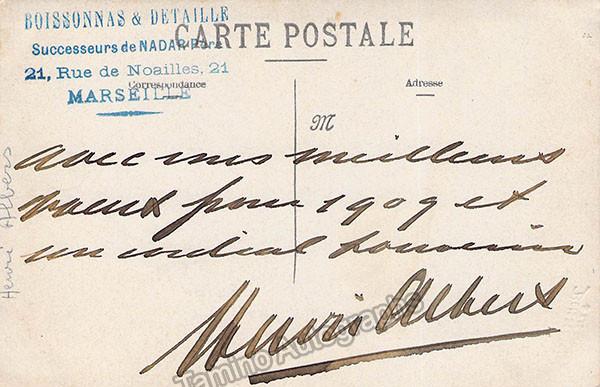 BOISSONNAS & DETAILLE
Successeurs de NADAR Père
21, Rue de Noailles, 21
MARSEILLE
CARTE POSTALE
Correspondance
Adresse
M
avec mes meilleurs
vœux pour 1909 et
un cordial souvenir
Henri Albers
Henri Albers
Tamino Autographs